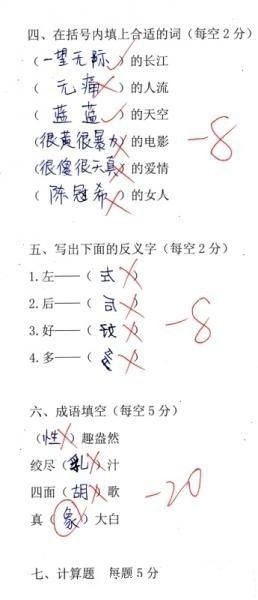 四、在括号内填上合适的词（每空2分）
（一望无际）的长江
（无痛）的人流
（蓝蓝）的天空
（很黄很暴力）的电影
（很傻很天真）的爱情
（陈冠希）的女人
-8
五、写出下面的反义字（每空2分）
1.左——（ ）
2.后——（ ）
3.好——（ ）
4.多——（ ）
-8
六、成语填空（每空5分）
（性）趣盎然
绞尽（乳）汁
四面（胡）歌
真（象）大白
-20
七、计算题 每题5分